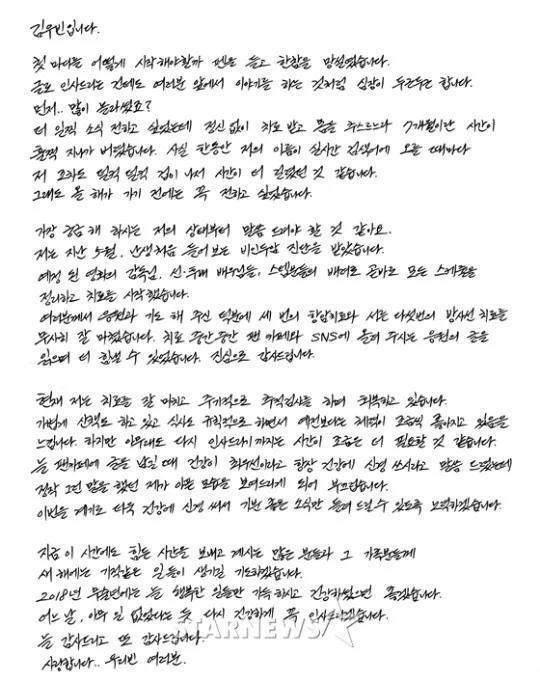 김우빈입니다.
첫 마디를 어떻게 시작해야할까 펜을 들고 한참을 망설였습니다.
글로 인사드리는 건데도 여러분 앞에서 이야기를 하는 것처럼 심장이 두근두근 합니다.
먼저.. 많이 놀라셨죠?
더 일찍 소식 전하고 싶었는데 정신 없이 치료 받고 몸을 추스르느라 7개월이란 시간이
훌쩍 지나가 버렸습니다. 사실 한동안 저의 이름이 실시간 검색어에 오를 때마다
저 조차도 덜컥 덜컥 겁이 나서 시간이 더 길었던 것 같습니다.
그래도 올 해가 가기 전에는 꼭 전하고 싶었습니다.
가장 궁금해 하시는 저의 상태부터 말씀 드려야 할 것 같아요.
저는 지난 5월, 난생처음 들어보는 비인두암 진단을 받았습니다.
예정 된 영화의 감독님, 선·후배 배우님들, 스텝분들의 배려로 곧바로 모든 스케줄을
정리하고 치료를 시작했습니다.
여러분께서 응원과 기도 해 주신 덕분에 세 번의 항암치료와 서른 다섯번의 방사선 치료를
무사히 잘 마쳤습니다. 치료 중간 중간 팬 카페와 SNS에 올려 주시는 응원의 글을
읽으며 더 힘낼 수 있었습니다. 진심으로 감사드립니다.
현재 저는 치료를 잘 마치고 주기적으로 추적검사를 하며 회복하고 있습니다.
가볍게 산책도 하고 있고 식사도 규칙적으로 하면서 예전보다는 체력이 조금씩 좋아지고 있음을
느낍니다. 하지만 아무래도 다시 인사드리기까지는 시간이 조금은 더 필요할 것 같습니다.
늘 팬카페에 글을 남길 때 건강이 최우선이라고 항상 건강에 신경 쓰시라고 말씀 드렸는데
정작 그런 말을 했던 제가 아픈 모습을 보여드리게 되어 부끄럽습니다.
이번을 계기로 더욱 건강에 신경 써서 기분 좋은 소식만 들려 드릴 수 있도록 노력하겠습니다.
지금 이 시간에도 힘든 시간을 보내고 계시는 많은 분들과 그 가족분들께
새 해에는 기적같은 일들이 생기길 기도하겠습니다.
2018년 무술년에는 늘 행복한 일들만 가득 하시고 건강하셨으면 좋겠습니다.
어느 날, 아무 일 없었다는 듯 다시 건강하게 꼭 인사드리겠습니다.
늘 감사드리고 또 감사드립니다.
STARNEWS
사랑합니다.. 우리빈 여러분.